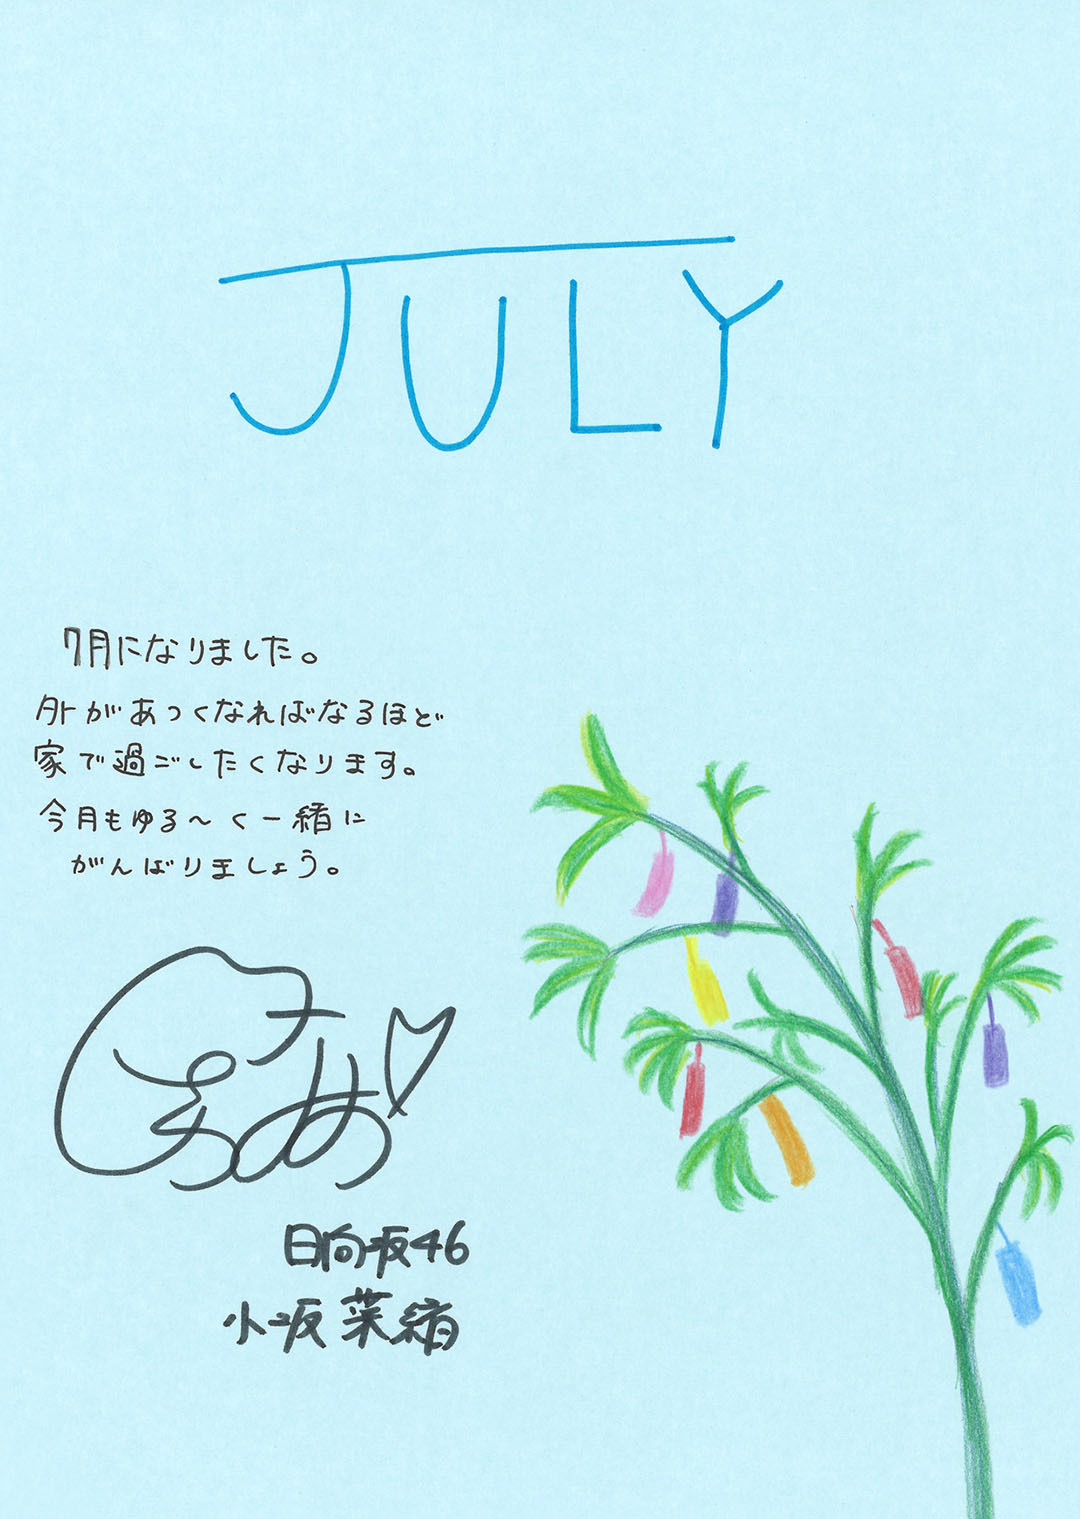 JULY
7月になりました。
外があつくなればなるほど
家で過ごしたくなります。
今月もゆる〜く一緒に
がんばりましょう。
日向坂46
小坂菜緒